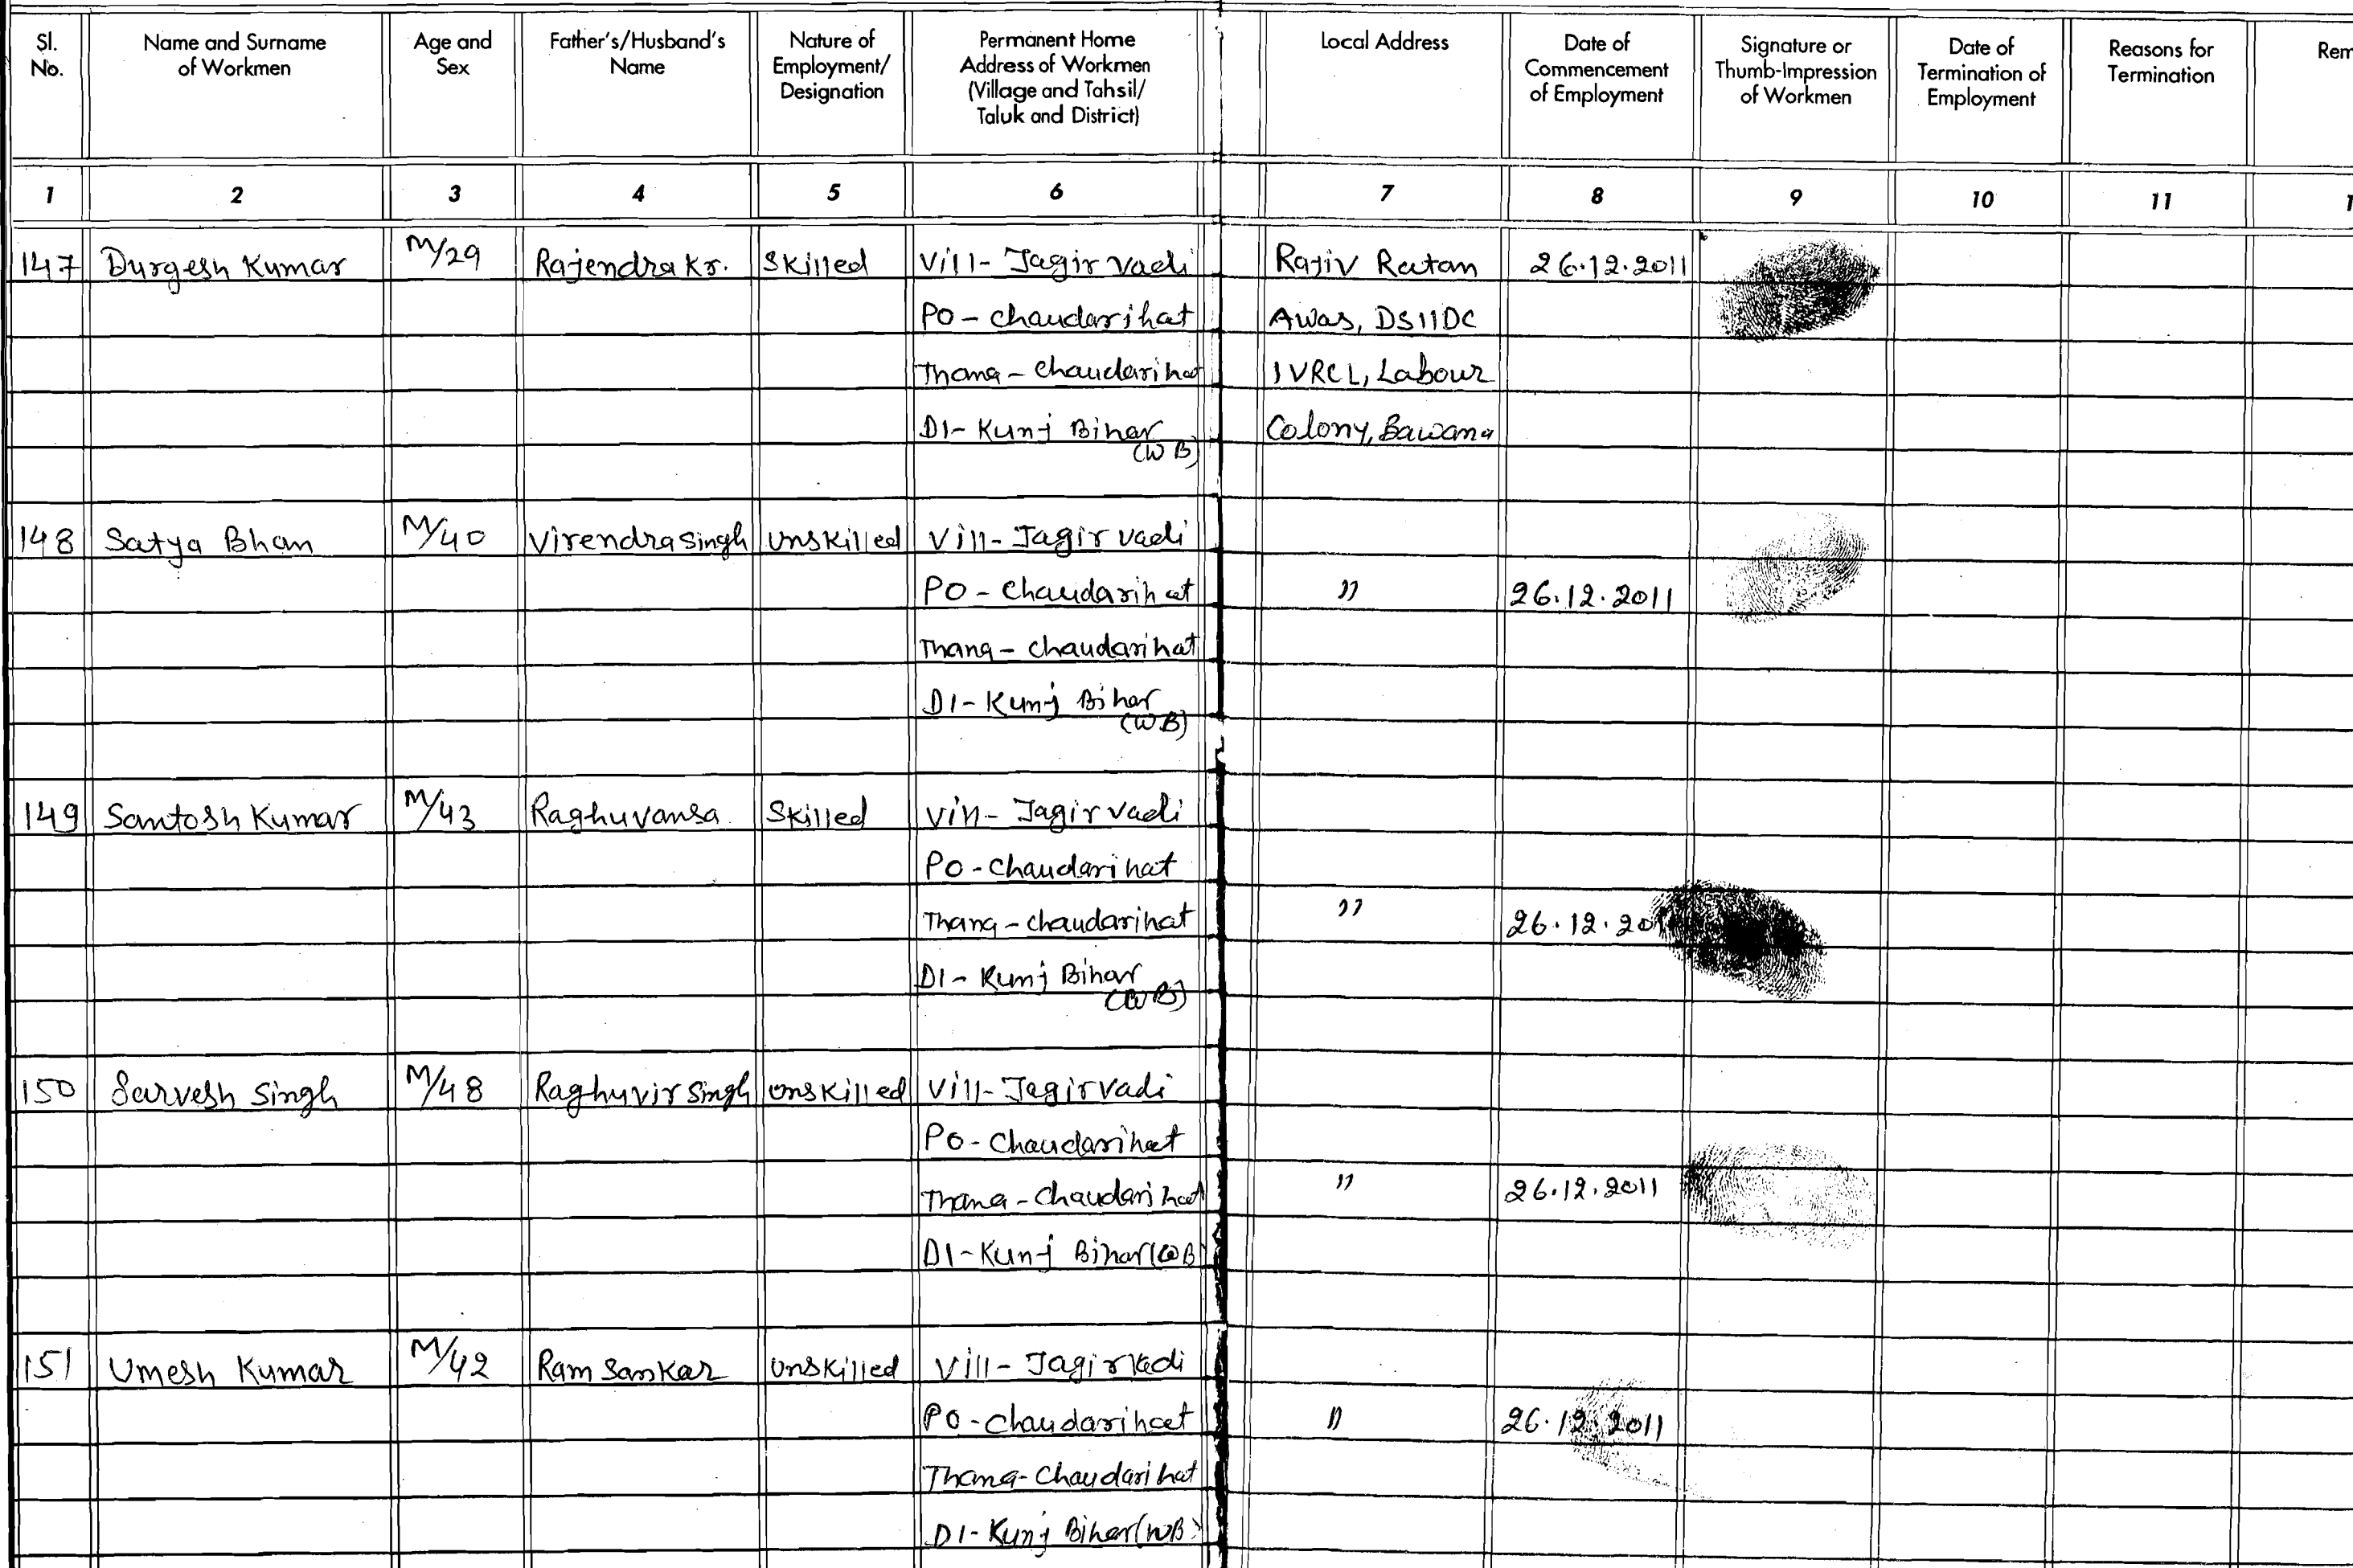 Sl. No. Name and Surname of Workmen Age and Sex Father's/Husband's Name Nature of Employment/ Designation Permanent Home Address of Workmen (Village and Tahsil/ Taluk and District) Local Address Date of Commencement of Employment Signature or Thumb-Impression of Workmen Date of Termination of Employment Reasons for Termination Rem
1 2 3 4 5 6 7 8 9 10 11 1
147 Durgesh Kumar M/29 Rajendra Kr. Skilled Vill- Jagir Vadi Rajiv Ratan 26.12.2011
PO - Chaudarihat Awas, DSIIDC
Thana - Chaudarihat IVRCL, Labour
DI- Kunj Bihar Colony, Bawana
(WB)
148 Satya Bhan M/40 Virendra Singh Unskilled Vill- Jagir Vadi
PO - Chaudarihat " 26.12.2011
Thana - Chaudarihat
DI- Kunj Bihar
(WB)
149 Santosh Kumar M/43 Raghuvansa Skilled Vill- Jagir Vadi
PO - Chaudarihat
Thana - Chaudarihat " 26.12.201
DI- Kunj Bihar
(WB)
150 Sarvesh Singh M/48 Raghuvir Singh Unskilled Vill- Jagir Vadi
PO - Chaudarihat
Thana - Chaudarihat " 26.12.2011
DI- Kunj Bihar (WB
151 Umesh Kumar M/42 Ram Sankar Unskilled Vill- Jagir Vadi
PO - Chaudarihat " 26.12.2011
Thana - Chaudarihat
DI- Kunj Bihar (WB)